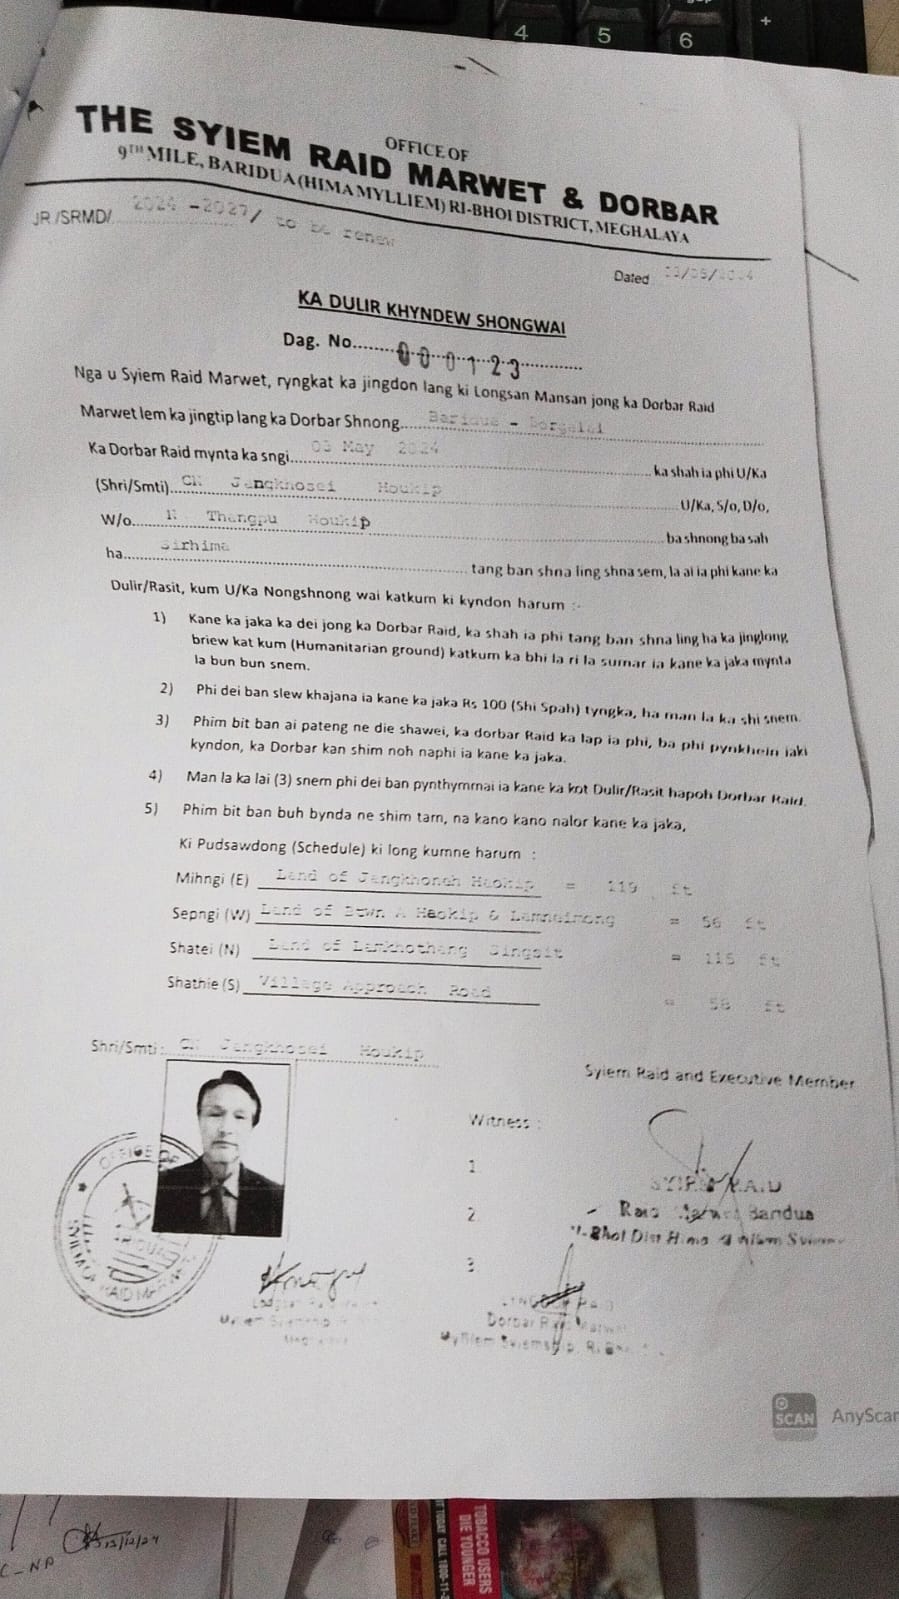 4 5 6 +
OFFICE OF
THE SYIEM RAID MARWET & DORBAR
9TH MILE, BARIDUA (HIMA MYLLIEM) RI-BHOI DISTRICT, MEGHALAYA
JR /SRMD/ 2024 -2027/ to be renew
Dated
KA DULIR KHYNDEW SHONGWAI
Dag. No........000123............
Nga u Syiem Raid Marwet, ryngkat ka jingdon lang ki Longsan Mansan jong ka Dorbar Raid
Marwet lem ka jingtip lang ka Dorbar Shnong.... Baridua - Borgalai
Ka Dorbar Raid mynta ka sngi.... 03 May 2024 ....ka shah ia phi U/Ka
(Shri/Smti).... Jangkhosei Houkip ....U/Ka, S/o, D/o,
W/o.... Thangpu Houkip ....ba shnong ba sah
ha.... Sirhima .... tang ban shna ling shna sem, la ai ia phi kane ka
Dulir/Rasit, kum U/Ka Nongshnong wai katkum ki kyndon harum :-
1) Kane ka jaka ka dei jong ka Dorbar Raid, ka shah ia phi tang ban shna ling ha ka jinglong
briew kat kum (Humanitarian ground) katkum ka bhi la ri la sumar ia kane ka jaka mynta
la bun bun snem.
2) Phi dei ban siew khajana ia kane ka jaka Rs 100 (Shi Spah) tyngka, ha man la ka shi snem.
3) Phim bit ban ai pateng ne die shawei, ka dorbar Raid ka lap ia phi, ba phi pynkhein iaki
kyndon, ka Dorbar kan shim noh naphi ia kane ka jaka.
4) Man la ka lai (3) snem phi dei ban pynthymmai ia kane ka kot Dulir/Rasit hapoh Dorbar Raid.
5) Phim bit ban buh bynda ne shim tam, na kano kano nalor kane ka jaka,
Ki Pudsawdong (Schedule) ki long kumne harum :
Mihngi (E) Land of Jangkhoneh Haokip = 119 ft
Sepngi (W) Land of A Haokip & Lamneimong = 56 ft
Shatei (N) Land of Lamkhothang Singsit = 115 ft
Shathie (S) Village Approach Road = 58 ft
Shri/Smti : Jangkhosei Houkip
Syiem Raid and Executive Member
Witness :
1
2
3
SYIEM RAID
Raid Marwet Baridua
OFFICE OF
Dorbar Raid Marwet
SCAN AnyScan
TOBACCO USERS
DIE YOUNGER